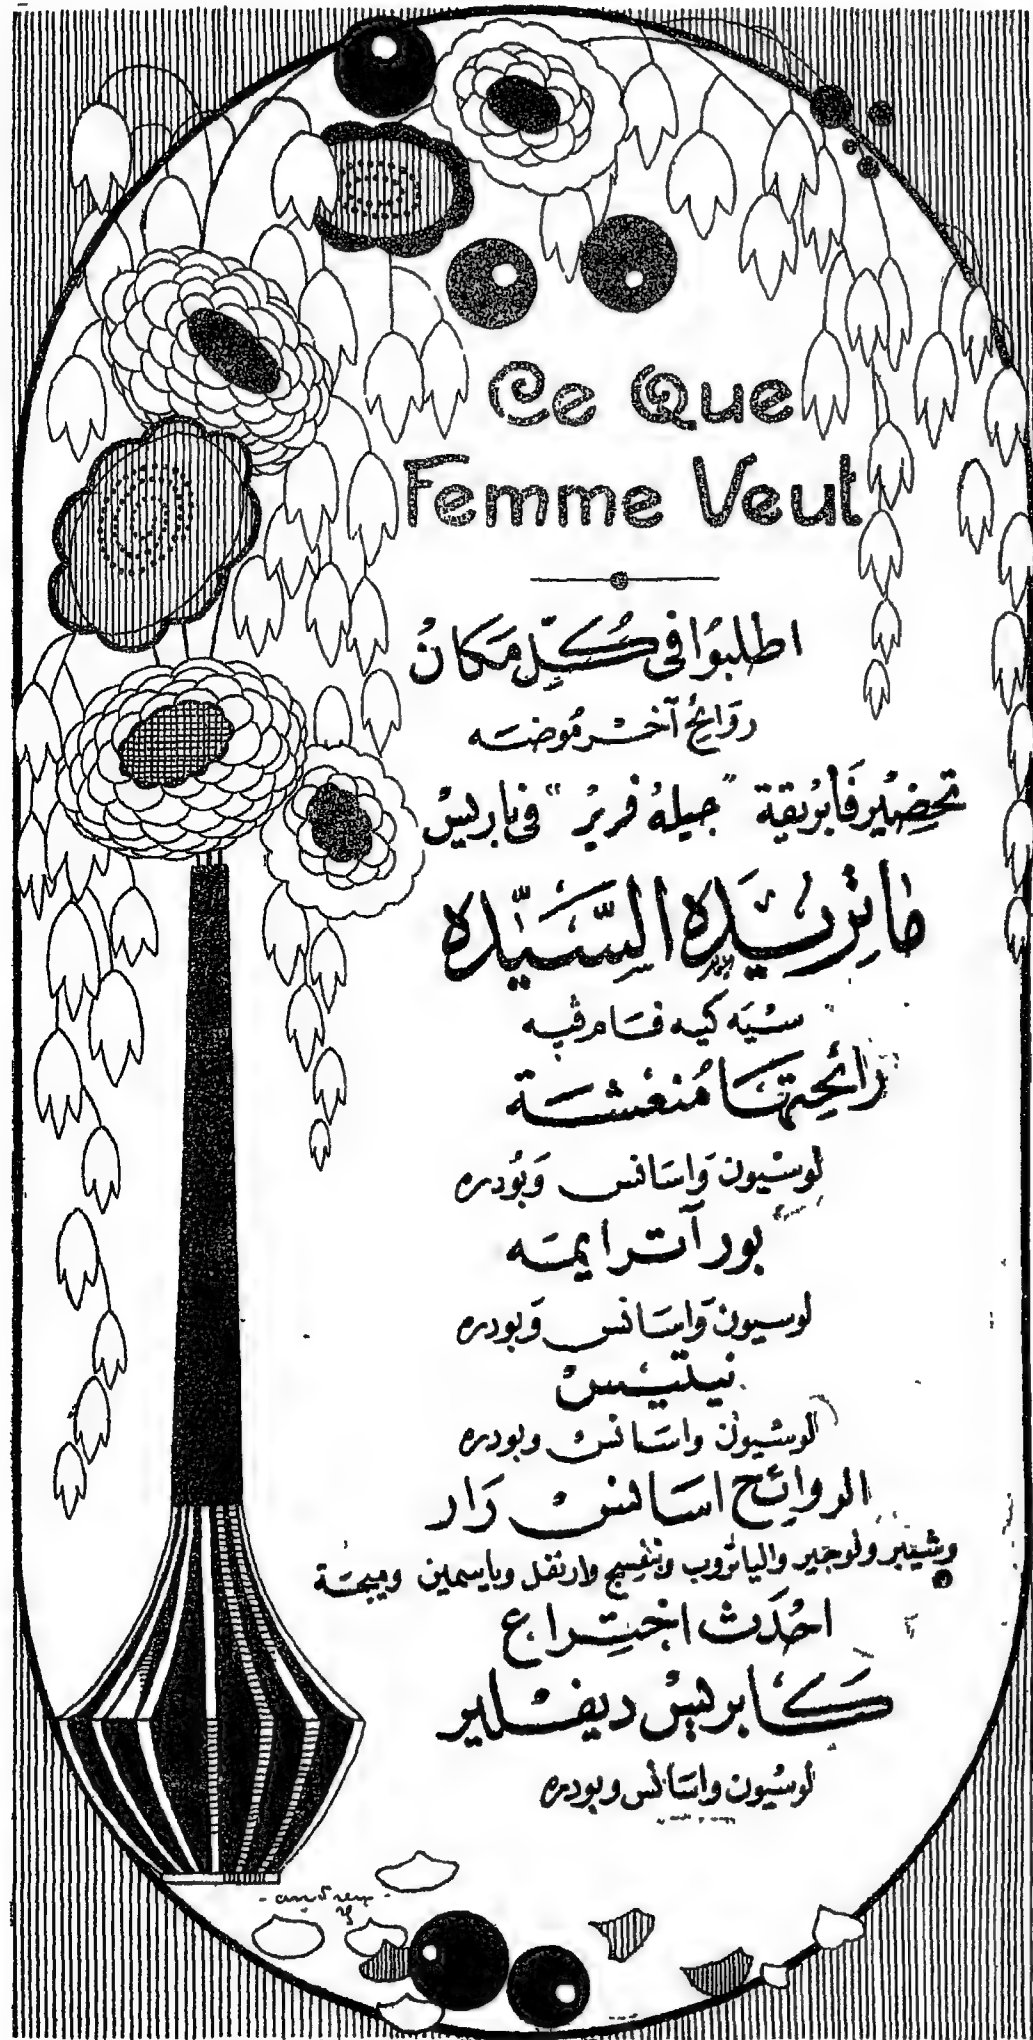 Ce Que
Femme Veut
اطلبوا في كُلّ مَكانْ
روَائح آخر مُوضَه
تحضير فَابْريقة "جيله فرير" في باريسْ
ماتُريدَه السَّيّده
سْيَه كيه فام فيه
رَائحِتهَا مُنعشَة
لوسْيون وَاسَانس وَبُودره
بور آترايمَه
لوسيون وَاسَانس وَبودره
نيلتيسْ
لوسْيون واسَانسْ وبودره
الروائح اسَانسْ رَار
وشيبر وفوجير والياتروب وبنفسج وارنفل وياسمين وميجَة
احْدَث اختِراع
كَابريسْ ديفْلير
لوسْيون واسَانس وبودره